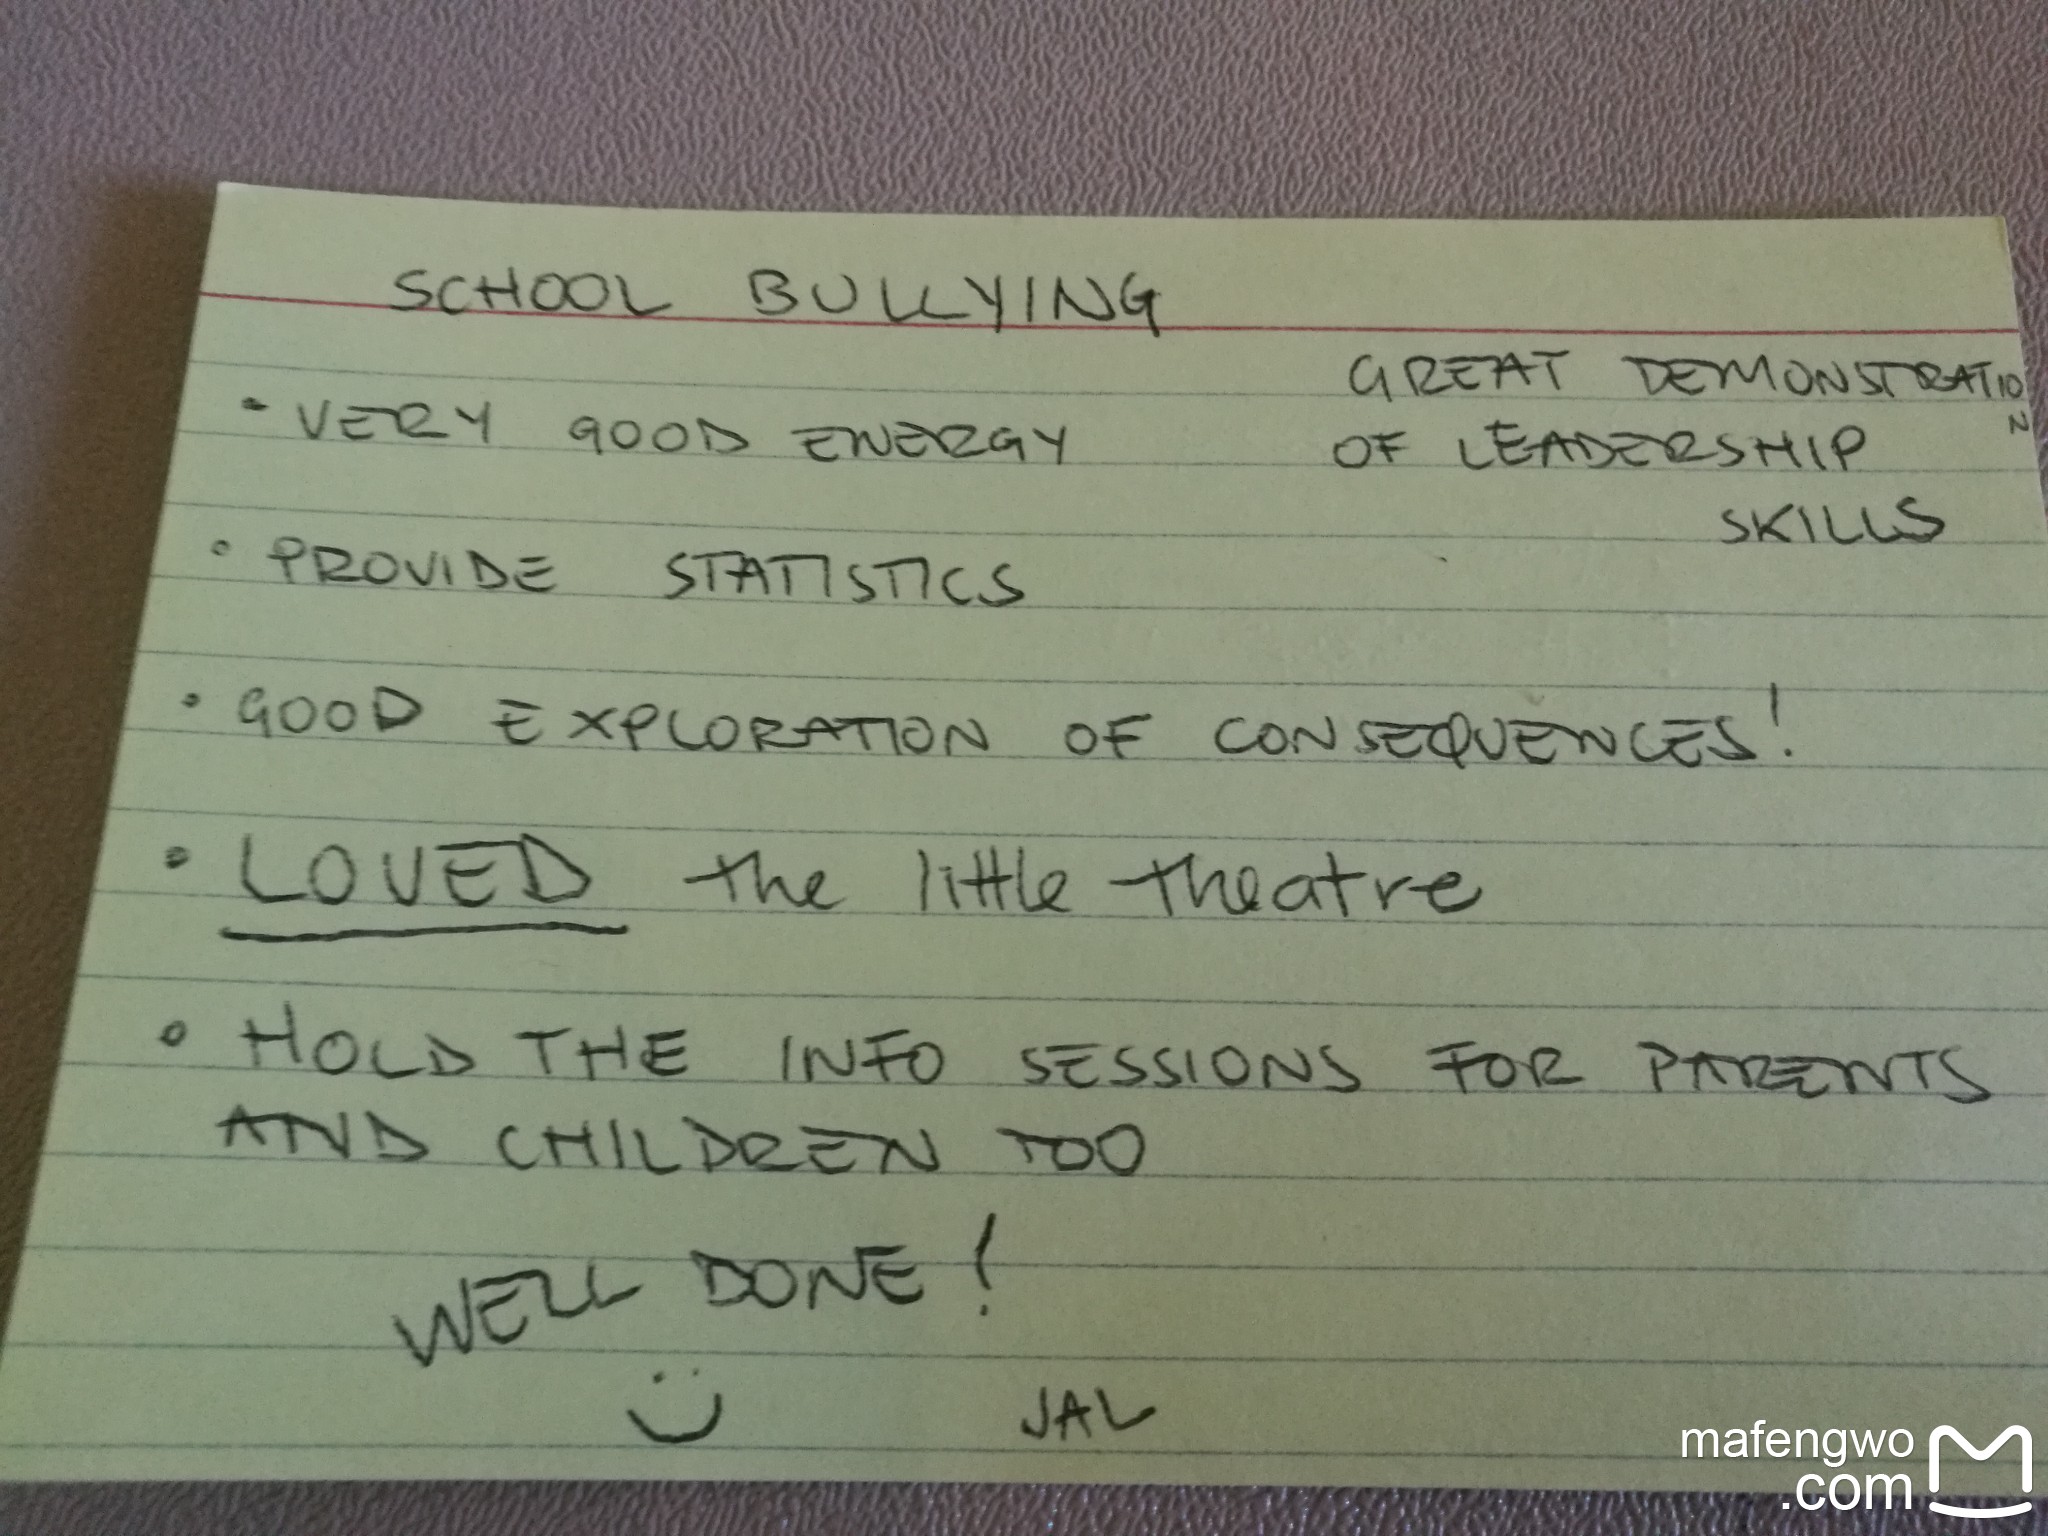 SCHOOL BULLYING
GREAT DEMONSTRATION
OF LEADERSHIP
SKILLS
• VERY GOOD ENERGY
• PROVIDE STATISTICS
• GOOD EXPLORATION OF CONSEQUENCES!
• LOVED the little theatre
• HOLD THE INFO SESSIONS FOR PARENTS
AND CHILDREN TOO
WELL DONE!
JAL
mafengwo
.com